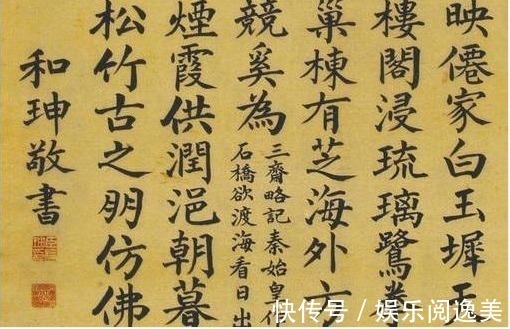 映僊家白玉墀
樓閣浸琉璃鷺
巢棟有芝海外
競奚為
三齋略記秦始皇
石橋欲渡海看日出
煙霞供潤浥朝暮
松竹古之朋仿佛
和珅敬書
快传号 / 娱乐阅逸美